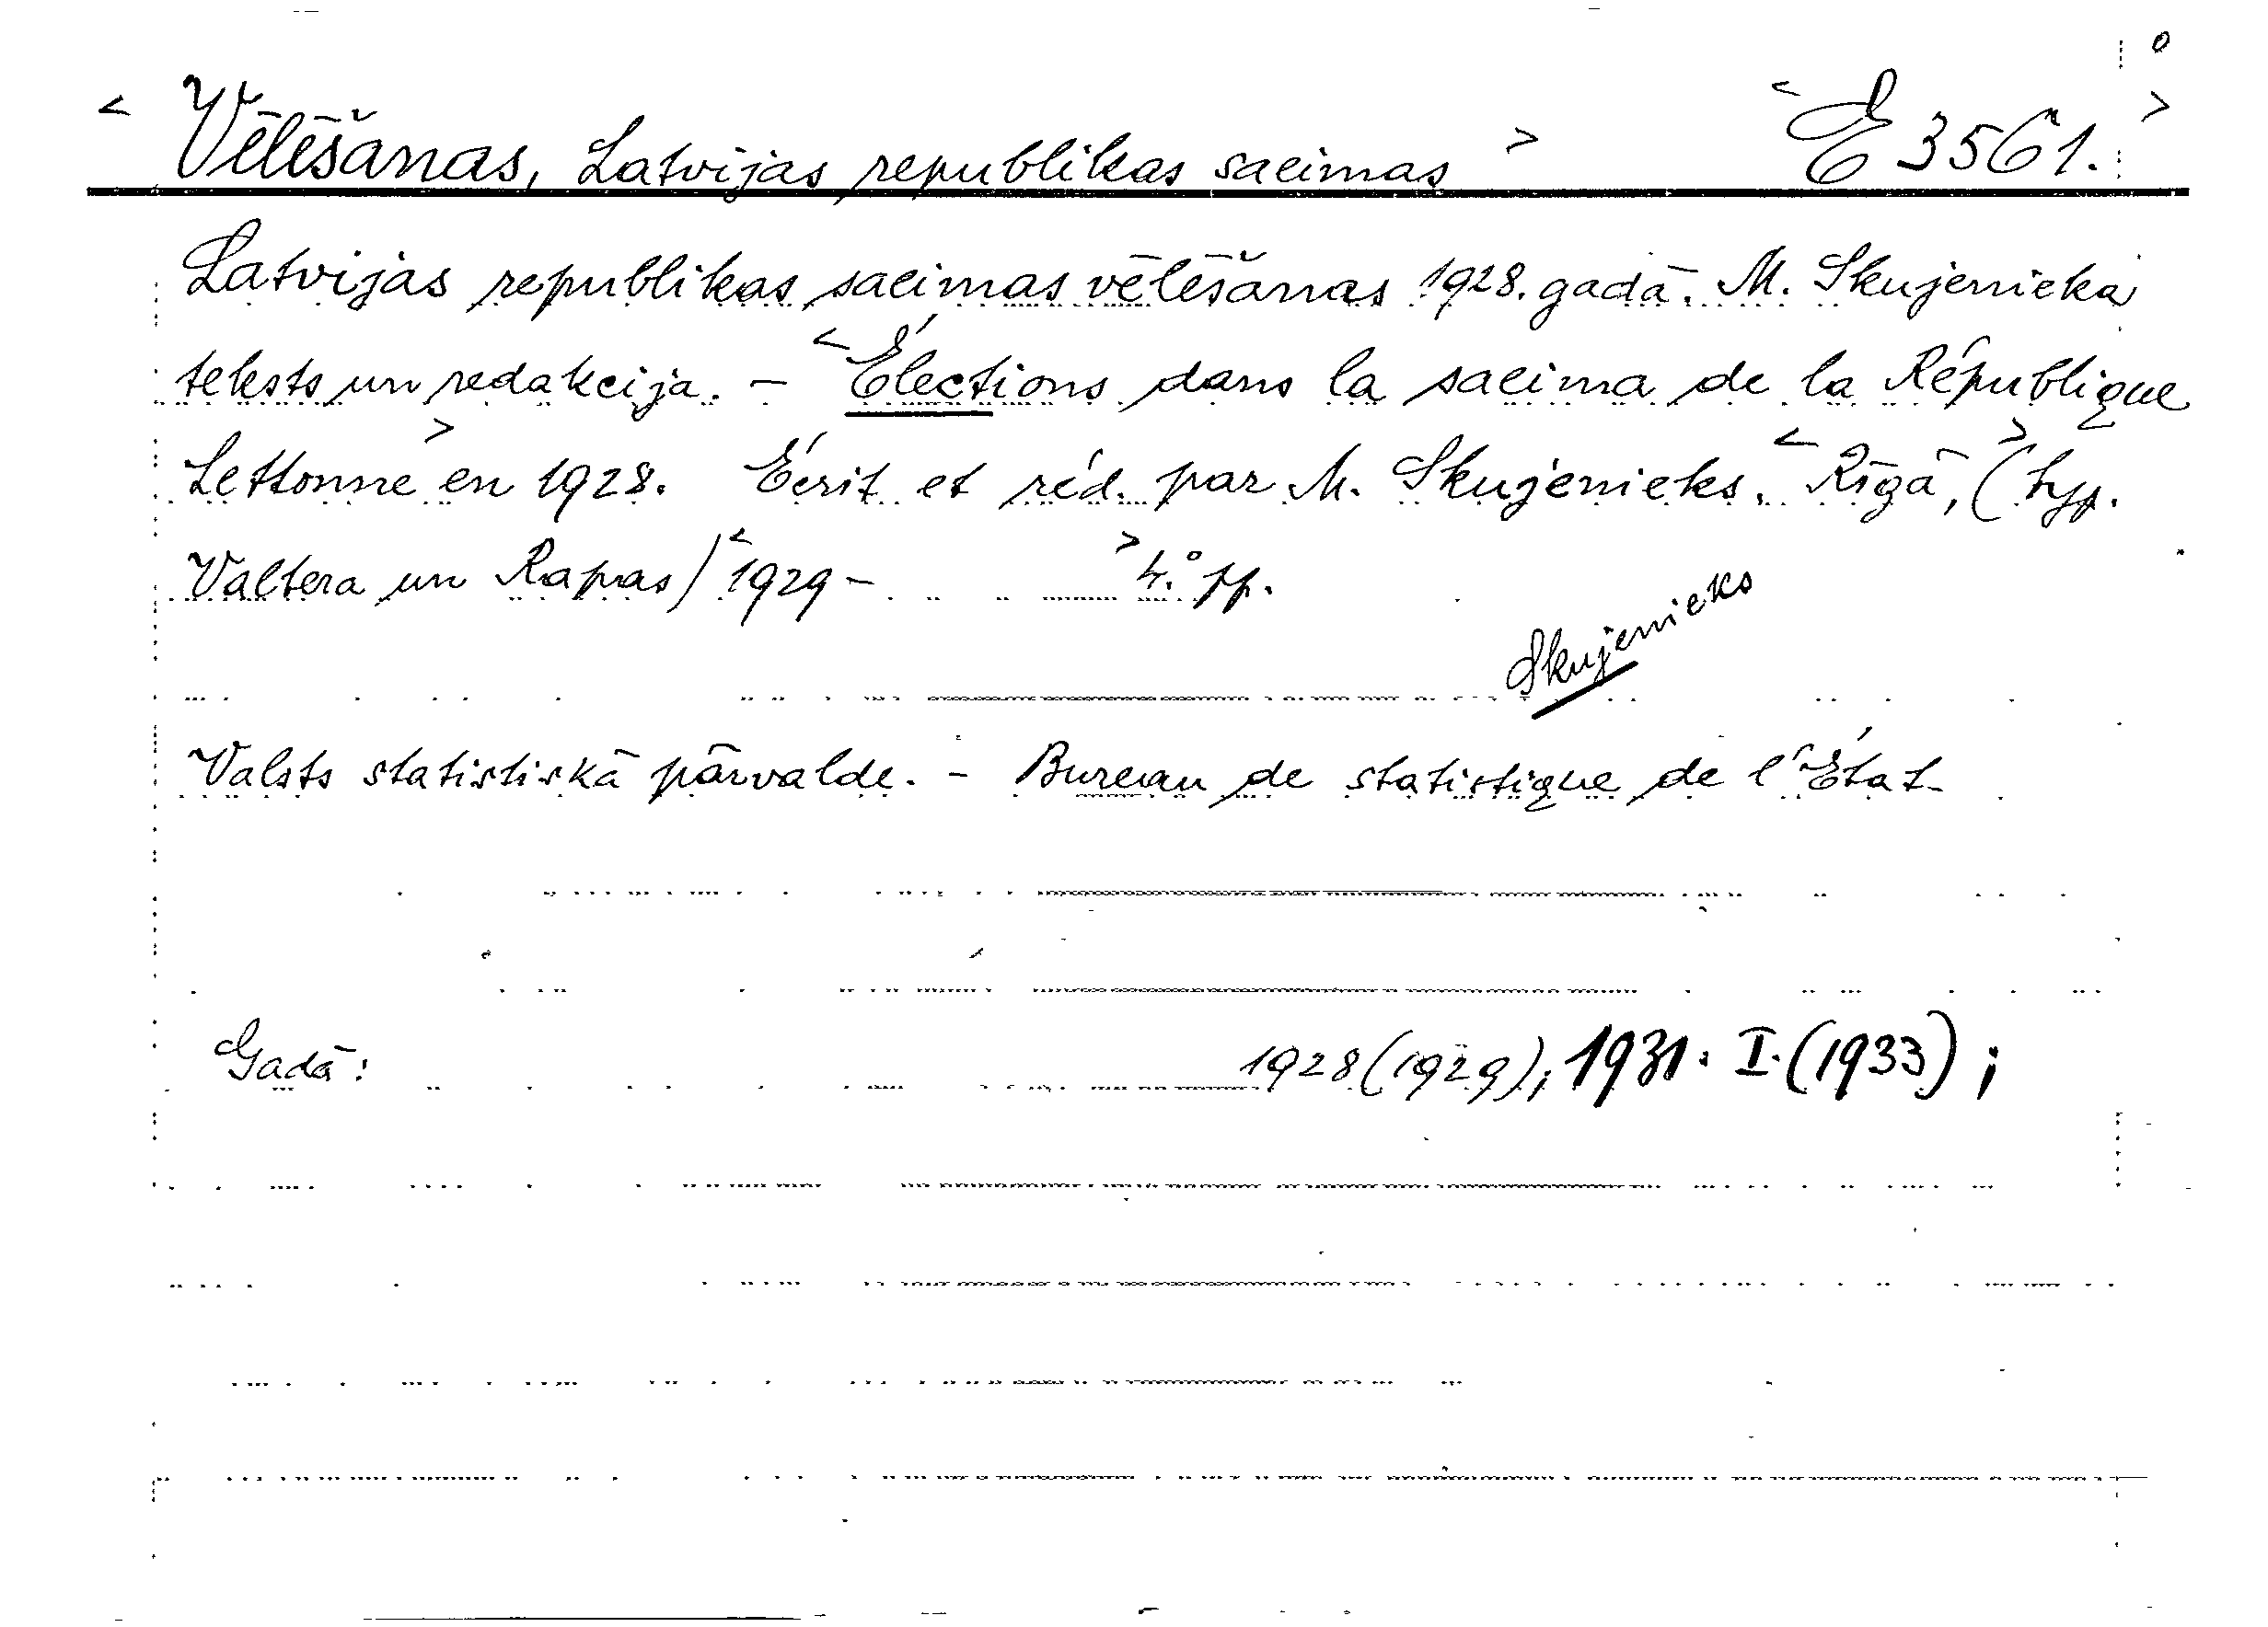 < Vēlēšanas, Latvijas republikas saeimas > < E 3561. >
Latvijas republikas saeimas vēlēšanas 1928. gadā. M. Skujenieka
teksts un redakcija. - < Élections dans la saeima de la République
Lettonne > en 1928. Écrit et réd. par M. Skujenieks. < Rīgā, > (typ.
Valtera un Rapas) < 1929 - > 4.° pp.
Skujenieks
Valsts statistiskā pārvalde. - Bureau de statistique de l'État.
Gadā: 1928 (1929); 1931. I. (1933);